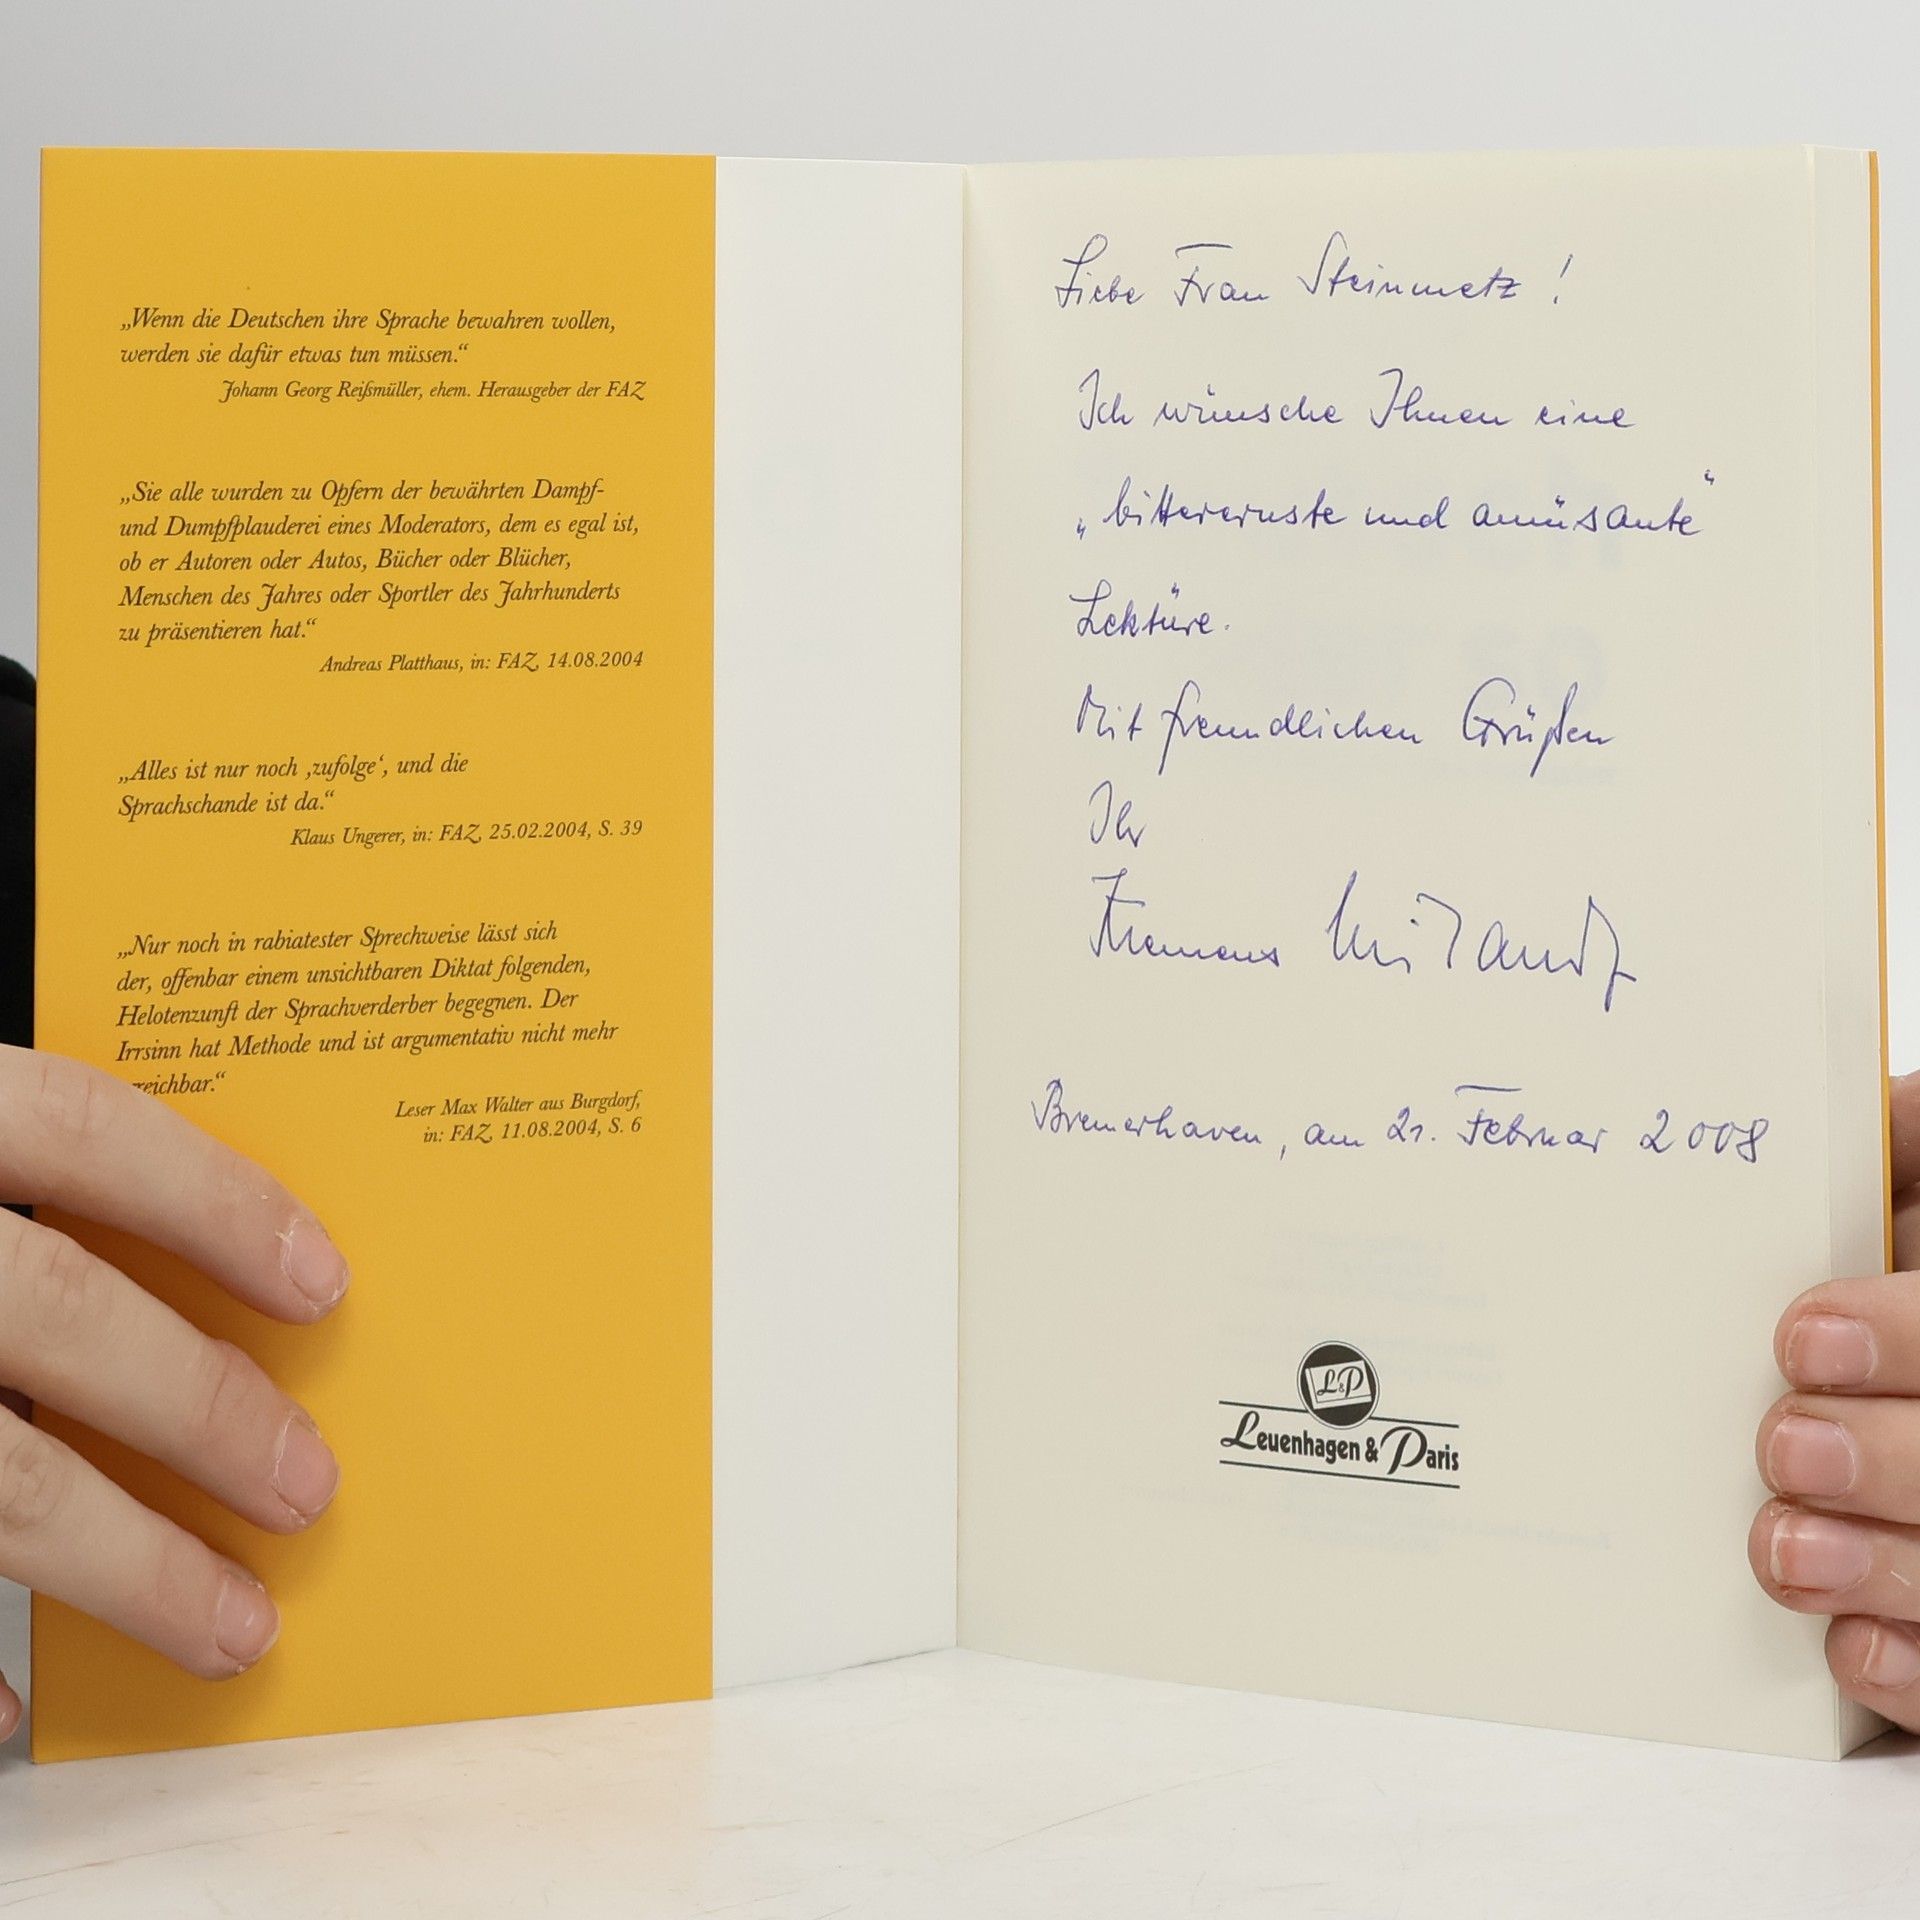 „Wenn die Deutschen ihre Sprache bewahren wollen,
werden sie dafür etwas tun müssen.“
Johann Georg Reißmüller, ehem. Herausgeber der FAZ
„Sie alle wurden zu Opfern der bewährten Dampf-
und Dumpfplauderei eines Moderators, dem es egal ist,
ob er Autoren oder Autos, Bücher oder Blücher,
Menschen des Jahres oder Sportler des Jahrhunderts
zu präsentieren hat.“
Andreas Platthaus, in: FAZ, 14.08.2004
„Alles ist nur noch ‚zufolge‘, und die
Sprachschande ist da.“
Klaus Ungerer, in: FAZ, 25.02.2004, S. 39
„Nur noch in rabiatester Sprechweise lässt sich
der, offenbar einem unsichtbaren Diktat folgenden,
Helotenzunft der Sprachverderber begegnen. Der
Irrsinn hat Methode und ist argumentativ nicht mehr
reichbar.“
Leser Max Walter aus Burgdorf,
in: FAZ, 11.08.2004, S. 6
Liebe Frau Steinmetz!
Ich wünsche Ihnen eine
„bitterernste und amüsante“
Lektüre.
Mit freundlichen Grüßen
Ihr
Klemens
Bremerhaven, am 21. Februar 2008
L&P
Leuenhagen & Paris